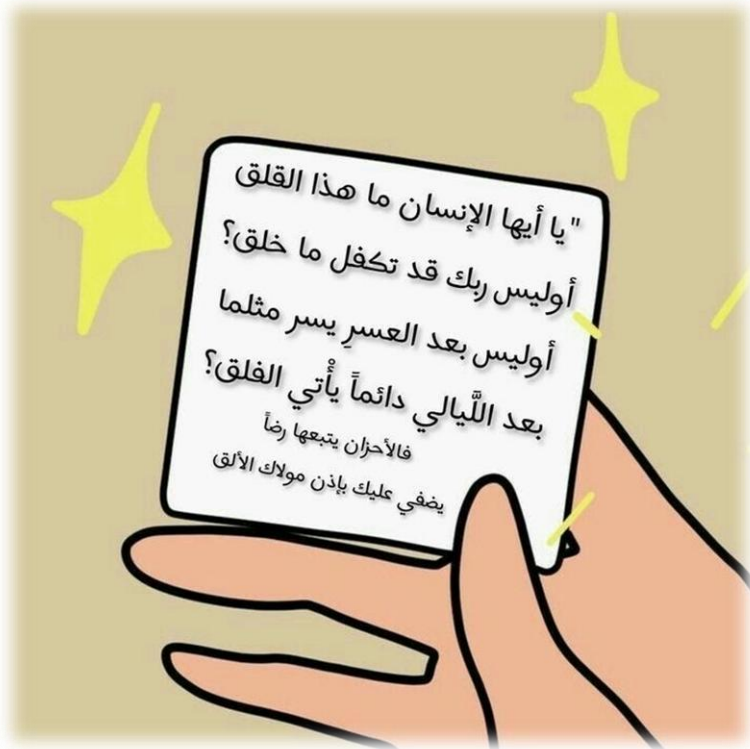 "يا أيها الإنسان ما هذا القلق
أوليس ربك قد تكفل ما خلق؟
أوليس بعد العسرِ يسر مثلما
بعد اللَّيالي دائماً يأْتي الفلق؟
فالأحزان يتبعها رضاً
يضفي عليك بإذن مولاك الألق